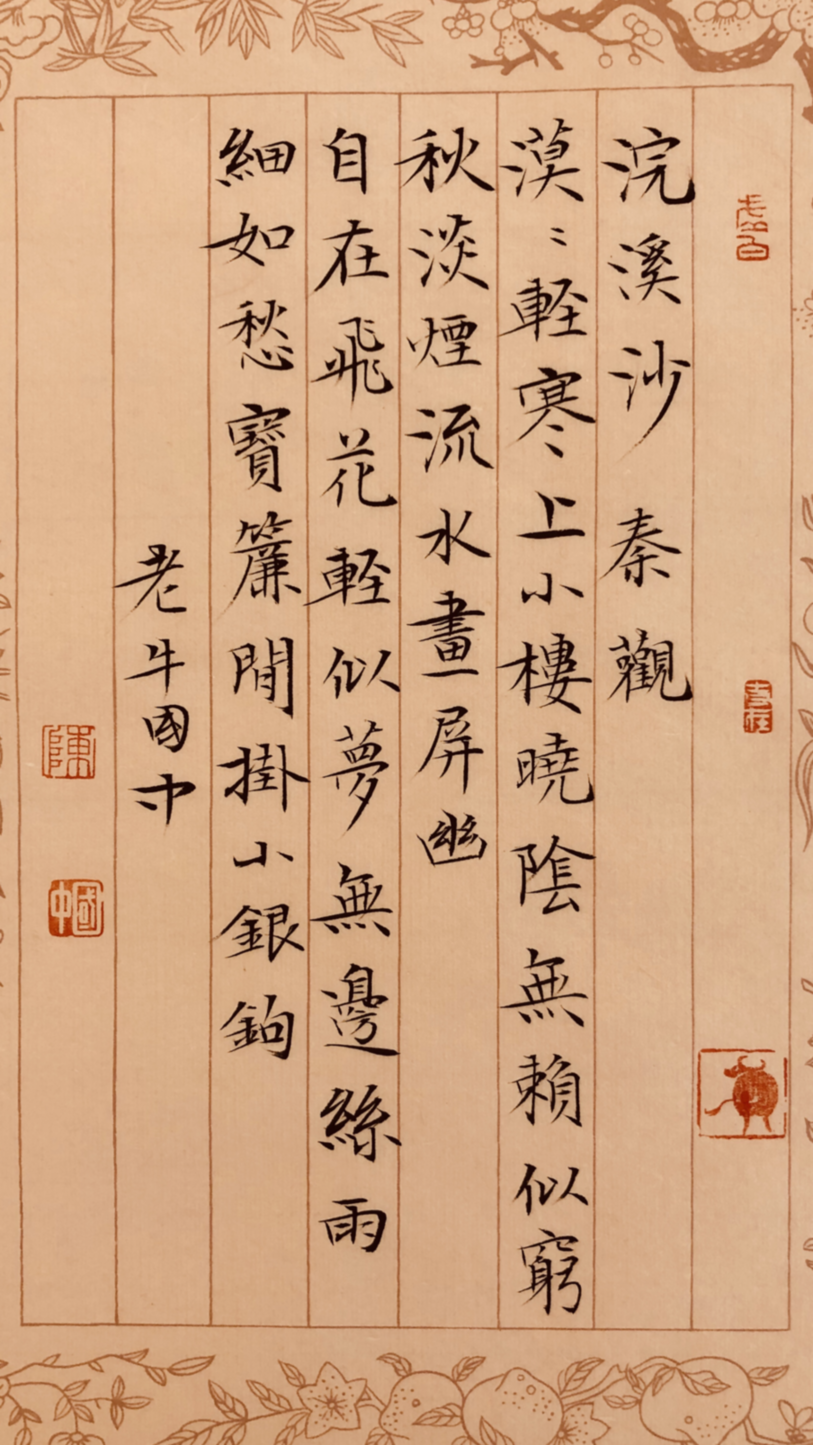 浣溪沙 秦觀
漠〻輕寒上小樓曉陰無賴似窮
秋淡煙流水畫屏幽
自在飛花輕似夢無邊絲雨
細如愁寶簾閒掛小銀鉤
老牛國中
陳
國中